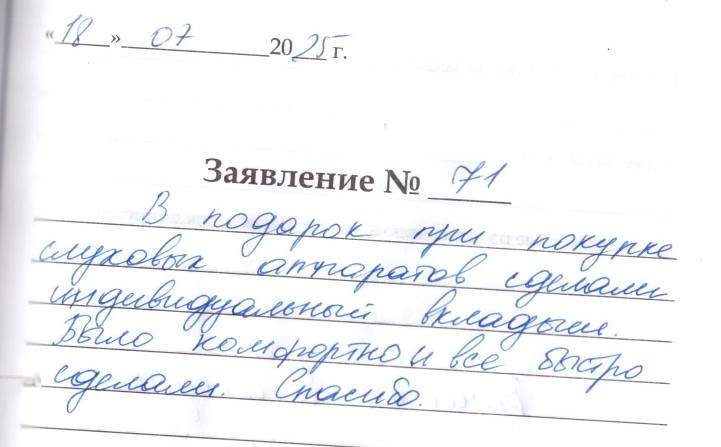 «18» 07 2025 г.
Заявление № 71
В подарок при покупке
слуховых аппаратов сделали
индивидуальный вкладыш.
Было комфортно и все быстро
сделали. Спасибо.